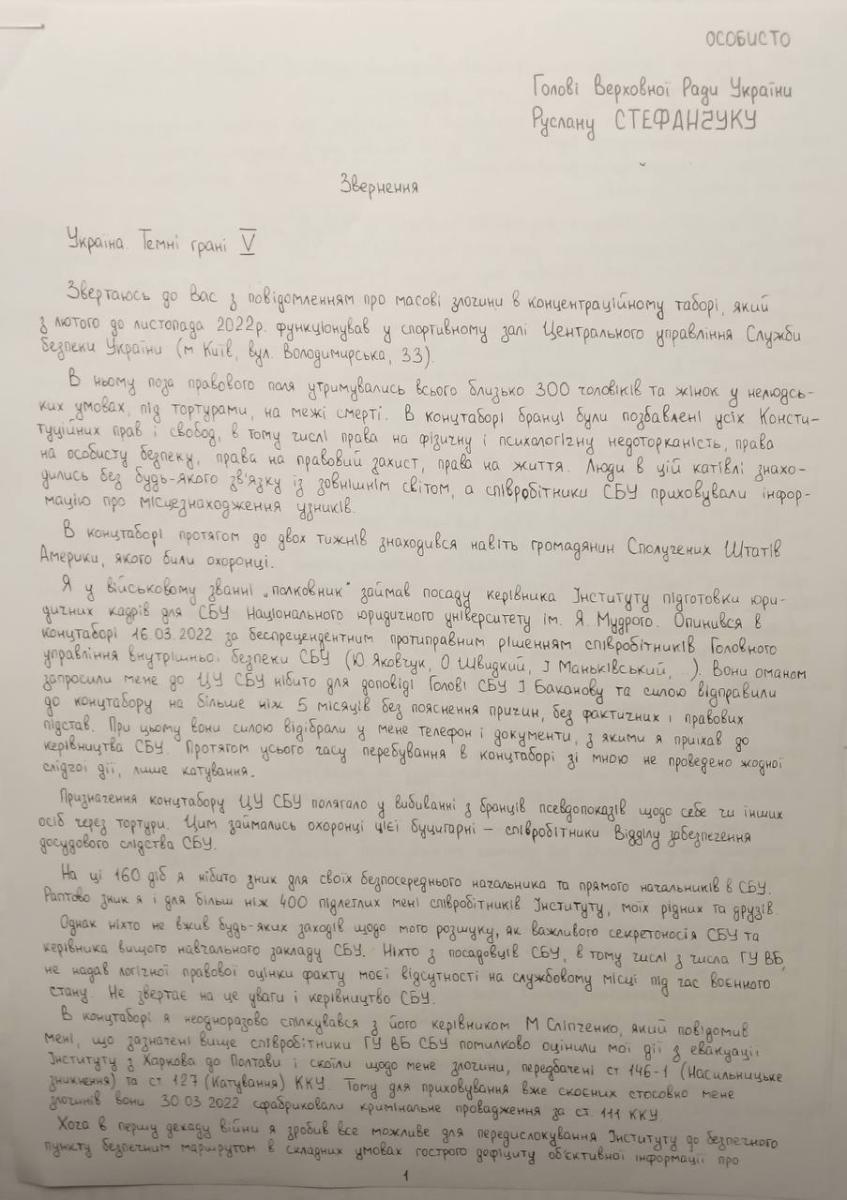 ОСОБИСТО
Голові Верховної Ради України
Руслану СТЕФАНЧУКУ
Звернення
Україна. Темні грані V
Звертаюсь до Вас з повідомленням про масові злочини в концентраційному таборі, який
з лютого до листопада 2022р. функціонував у спортивному залі Центрального управління Служби
безпеки України (м Київ, вул. Володимирська, 33).
В ньому поза правового поля утримувались всього близько 300 чоловіків та жінок у нелюдсь-
ких умовах, під тортурами, на межі смерті. В концтаборі бранці були позбавлені усіх Консти-
туційних прав і свобод, в тому числі права на фізичну і психологічну недоторканість, права
на особисту безпеку, права на правовий захист, права на життя. Люди в цій катівлі знахо-
дились без будь-якого зв'язку із зовнішнім світом, а співробітники СБУ приховували інфор-
мацію про місцезнаходження узників.
В концтаборі протягом до двох тижнів знаходився навіть громадянин Сполучених Штатів
Америки, якого били охоронці.
Я у військовому званні „полковник" займав посаду керівника Інституту підготовки юри-
дичних кадрів для СБУ Національного юридичного університету ім. Я. Мудрого. Опинився в
концтаборі 16.03.2022 за беспрецендентним протиправним рішенням співробітників Головного
управління внутрішньої безпеки СБУ (Ю Яковчук, О Швидкий, І Маньківський, ...). Вони оманом
запросили мене до ЦУ СБУ нібито для доповіді Голові СБУ І Баканову та силою відправили
до концтабору на більше ніж 5 місяців без пояснення причин, без фактичних і правових
підстав. При цьому вони силою відібрали у мене телефон і документи, з якими я приїхав до
керівництва СБУ. Протягом усього часу перебування в концтаборі зі мною не проведено жодної
слідчої дії, лише катування.
Призначення концтабору ЦУ СБУ полягало у вибиванні з бранців псевдопоказів щодо себе чи інших
осіб через тортури. Цим займались охоронці цієї буцигарні – співробітники Відділу забезпечення
досудового слідства СБУ.
На ці 160 діб я нібито зник для своїх безпосереднього начальника та прямого начальників в СБУ.
Раптово зник я і для більш ніж 400 підлеглих мені співробітників Інституту, моїх рідних та друзів.
Однак ніхто не вжив будь-яких заходів щодо мого розшуку, як важливого секретоносія СБУ та
керівника вищого навчального закладу СБУ. Ніхто з посадовців СБУ, в тому числі з числа ГУ ВБ,
не надав логічної правової оцінки факту моєї відсутності на службовому місці під час воєнного
стану. Не звертає на це уваги і керівництво СБУ.
В концтаборі я неодноразово спілкувався з його керівником М Сліпченко, який повідомив
мені, що зазначені вище співробітники ГУ ВБ СБУ помилково оцінили мої дії з евакуації
Інституту з Харкова до Полтави і скоїли щодо мене злочини, передбачені ст 146-1 (Насильницьке
зникнення) та ст 127 (Катування) ККУ. Тому для приховування вже скоєних стосовно мене
злочинів вони 30 03 2022 сфабриковали кримінальне провадження за ст. 111 ККУ.
Хоча в першу декаду війни я зробив все можливе для передислокування Інституту до безпечного
пункту безпечним маршрутом в складних умовах гострого дефіциту об'єктивної інформації про
1